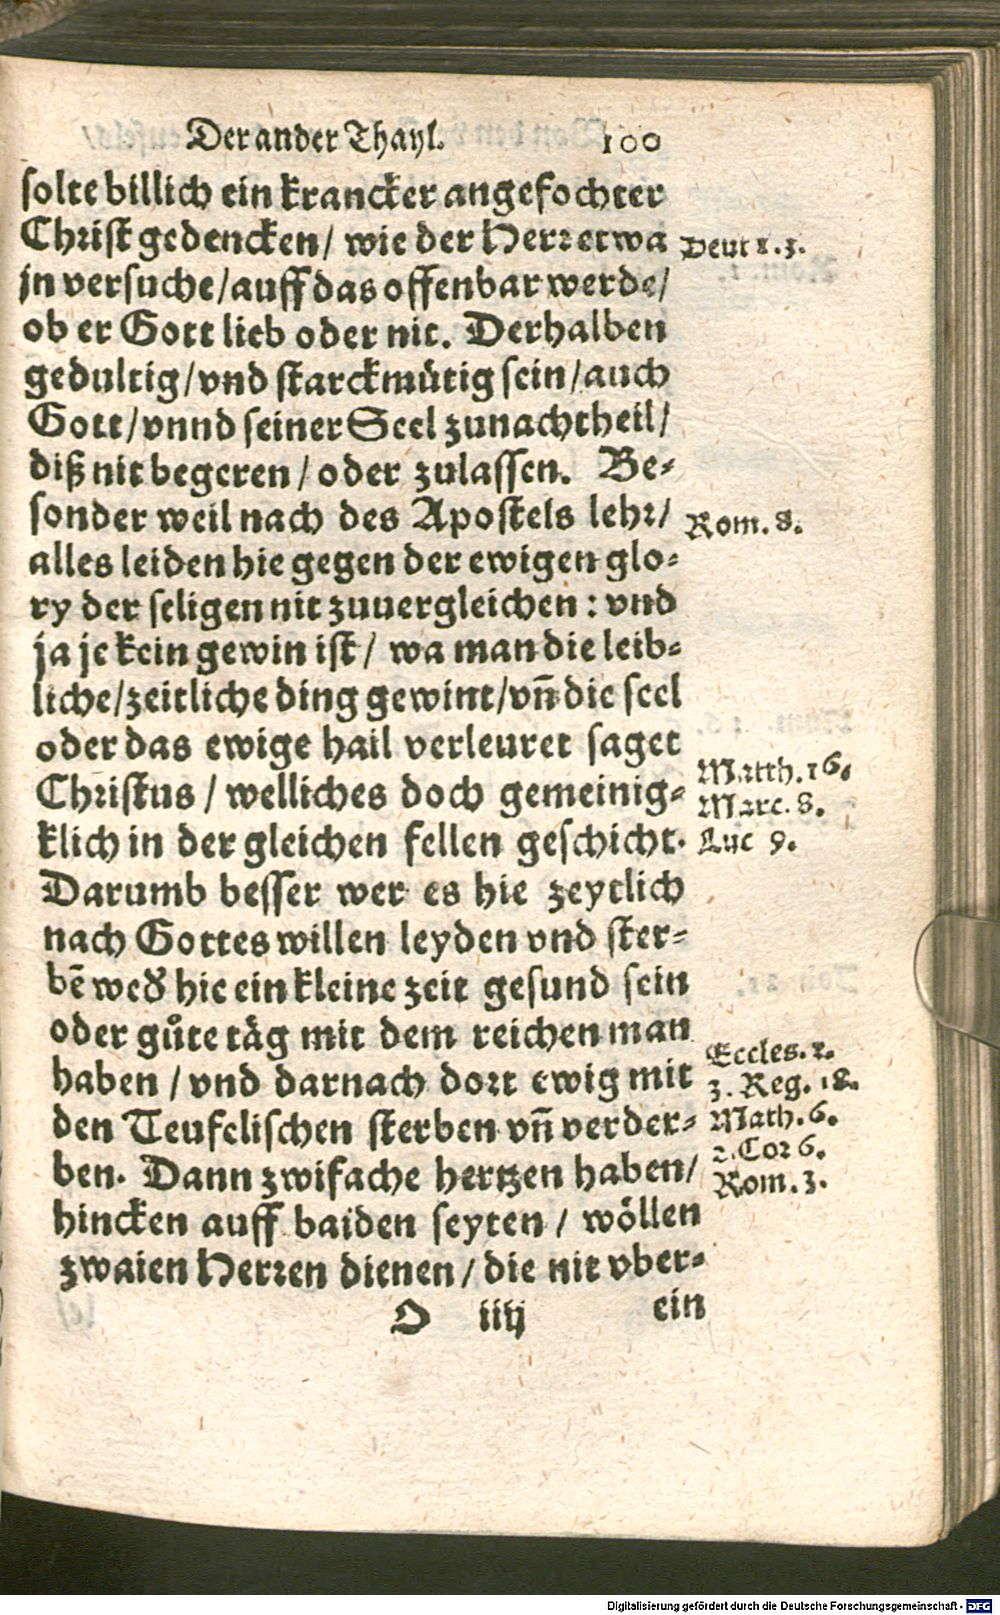 Der ander Thayl. 100
solte billich ein krancker angefochter
Christ gedencken / wie der Herr etwa
jn versuche / auff das offenbar werde /
ob er Gott lieb oder nit. Derhalben
gedultig / vnd starckmütig sein / auch
Gott / vnnd seiner Seel zunachtheil /
diß nit begeren / oder zulassen. Be-
sonder weil nach des Apostels lehr /
alles leiden hie gegen der ewigen glo-
ry der seligen nit zuuergleichen : vnd
ja je kein gewin ist / wa man die leib-
liche / zeitliche ding gewint / vn̄ die seel
oder das ewige hail verleuret saget
Christus / welliches doch gemeinig-
klich in der gleichen fellen geschicht.
Darumb besser wer es hie zeytlich
nach Gottes willen leyden vnd ster-
bē wed' hie ein kleine zeit gesund sein
oder gůte täg mit dem reichen man
haben / vnd darnach dort ewig mit
den Teufelischen sterben vn̄ verder-
ben. Dann zwifache hertzen haben /
hincken auff baiden seyten / wöllen
zwaien Herren dienen / die nit vber-
O iiij ein
Deut 8. 3.
Rom. 8.
Matth. 16.
Marc. 8.
Luc 9.
Eccles. 2.
3. Reg. 18.
Math. 6.
2. Cor 6.
Rom. 3.
Digitalisierung gefördert durch die Deutsche Forschungsgemeinschaft - DFG